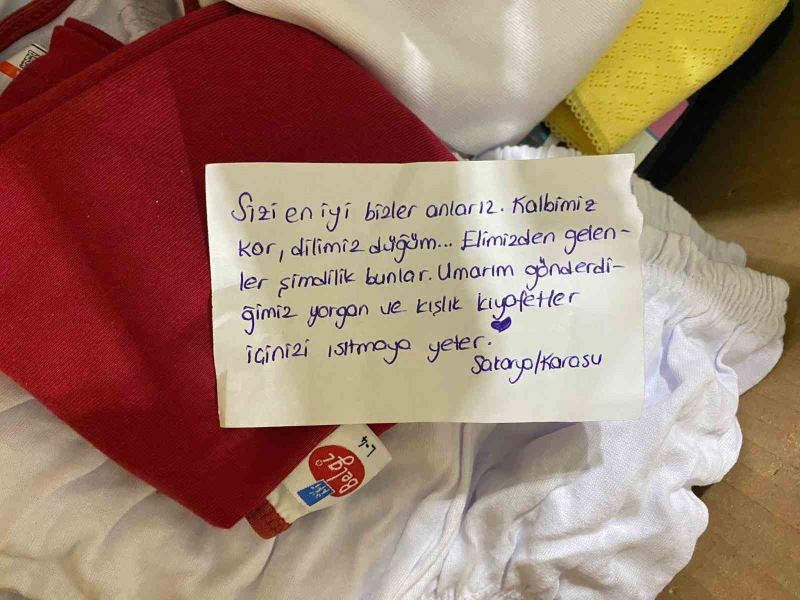 Sizi en iyi bizler anlarız. Kalbimiz
kor, dilimiz düğüm... Elimizden gelen-
ler şimdilik bunlar. Umarım gönderdi-
ğimiz yorgan ve kışlık kıyafetler
içinizi ısıtmaya yeter.
Sakarya/Karasu
L-4
Belgi